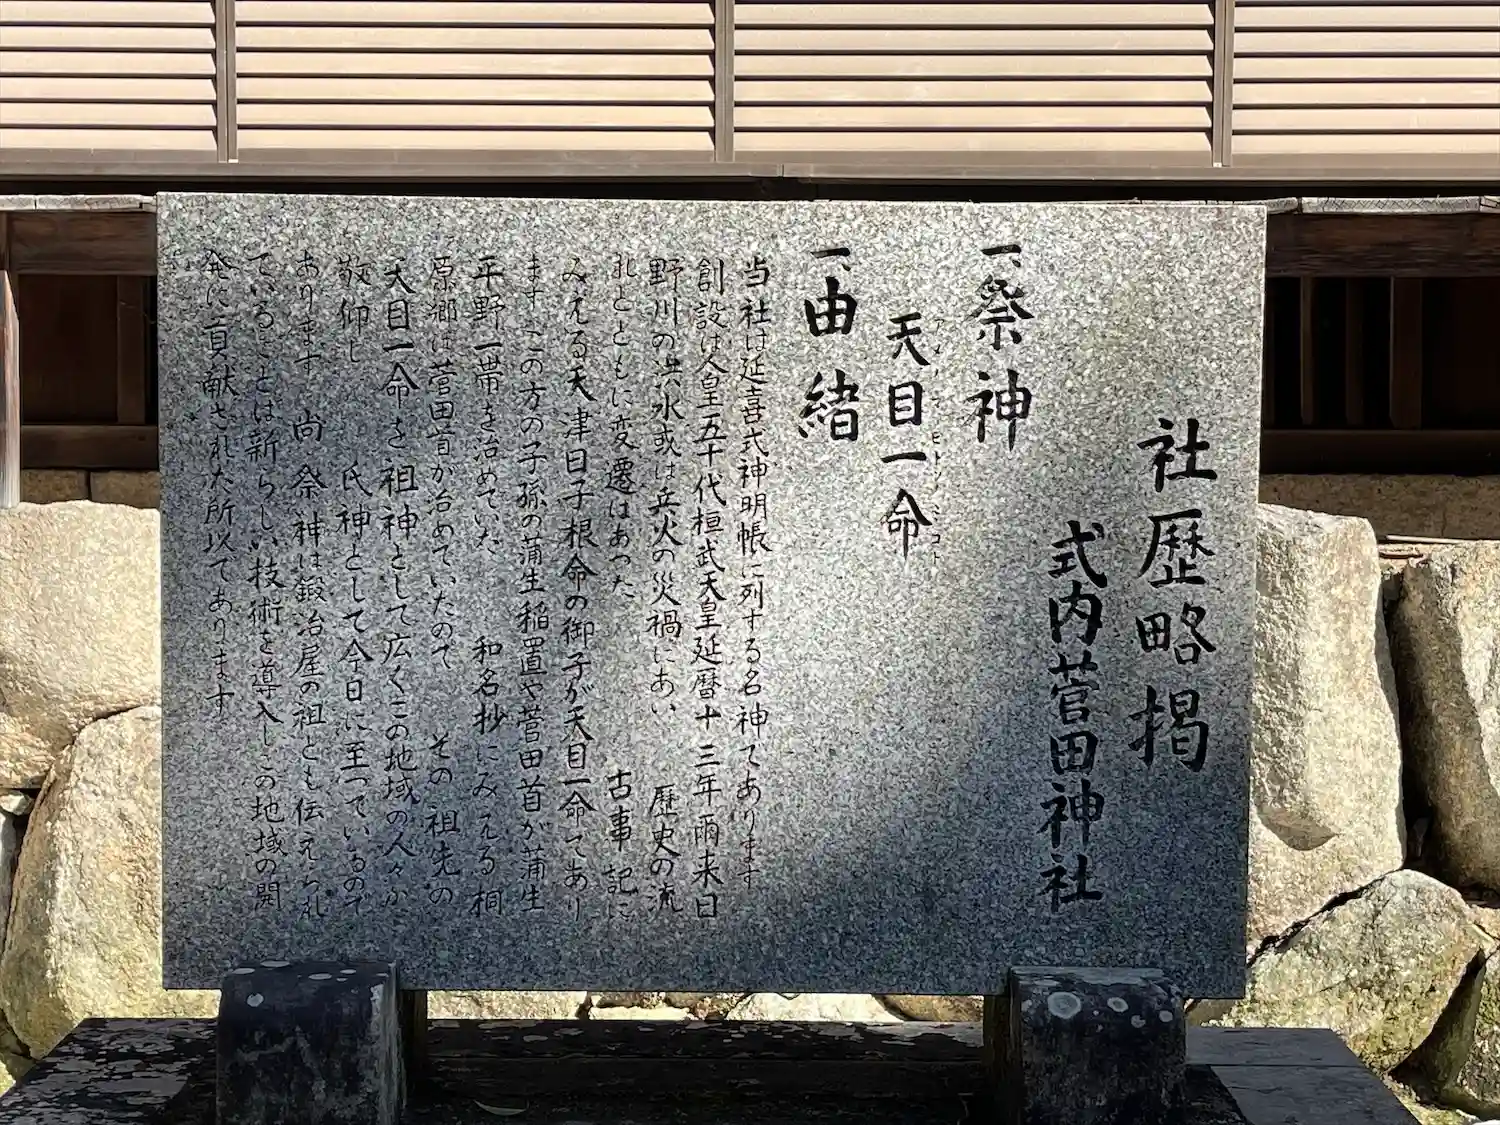 社歴略掲
式内菅田神社
一、祭神
天目一命
アメノマヒトツノミコト
一、由緒
当社は延喜式神明帳に列する名神であります
創設は人皇五十代桓武天皇延暦十三年爾来日
野川の洪水或は兵火の災禍にあい 歴史の流
れとともに変遷はあった 古事記に
みえる天津日子根命の御子が天目一命であり
ます この方の子孫の蒲生稲置や菅田首が蒲生
平野一帯を治めていた 和名抄にみえる桐
原郷は菅田首が治めていたので その祖先の
天目一命を祖神として広くこの地域の人々が
敬仰し 氏神として今日に至っているので
あります 尚祭神は鍛冶屋の祖とも伝えられ
ていることは新らしい技術を導入しこの地域の開
発に貢献された所以であります